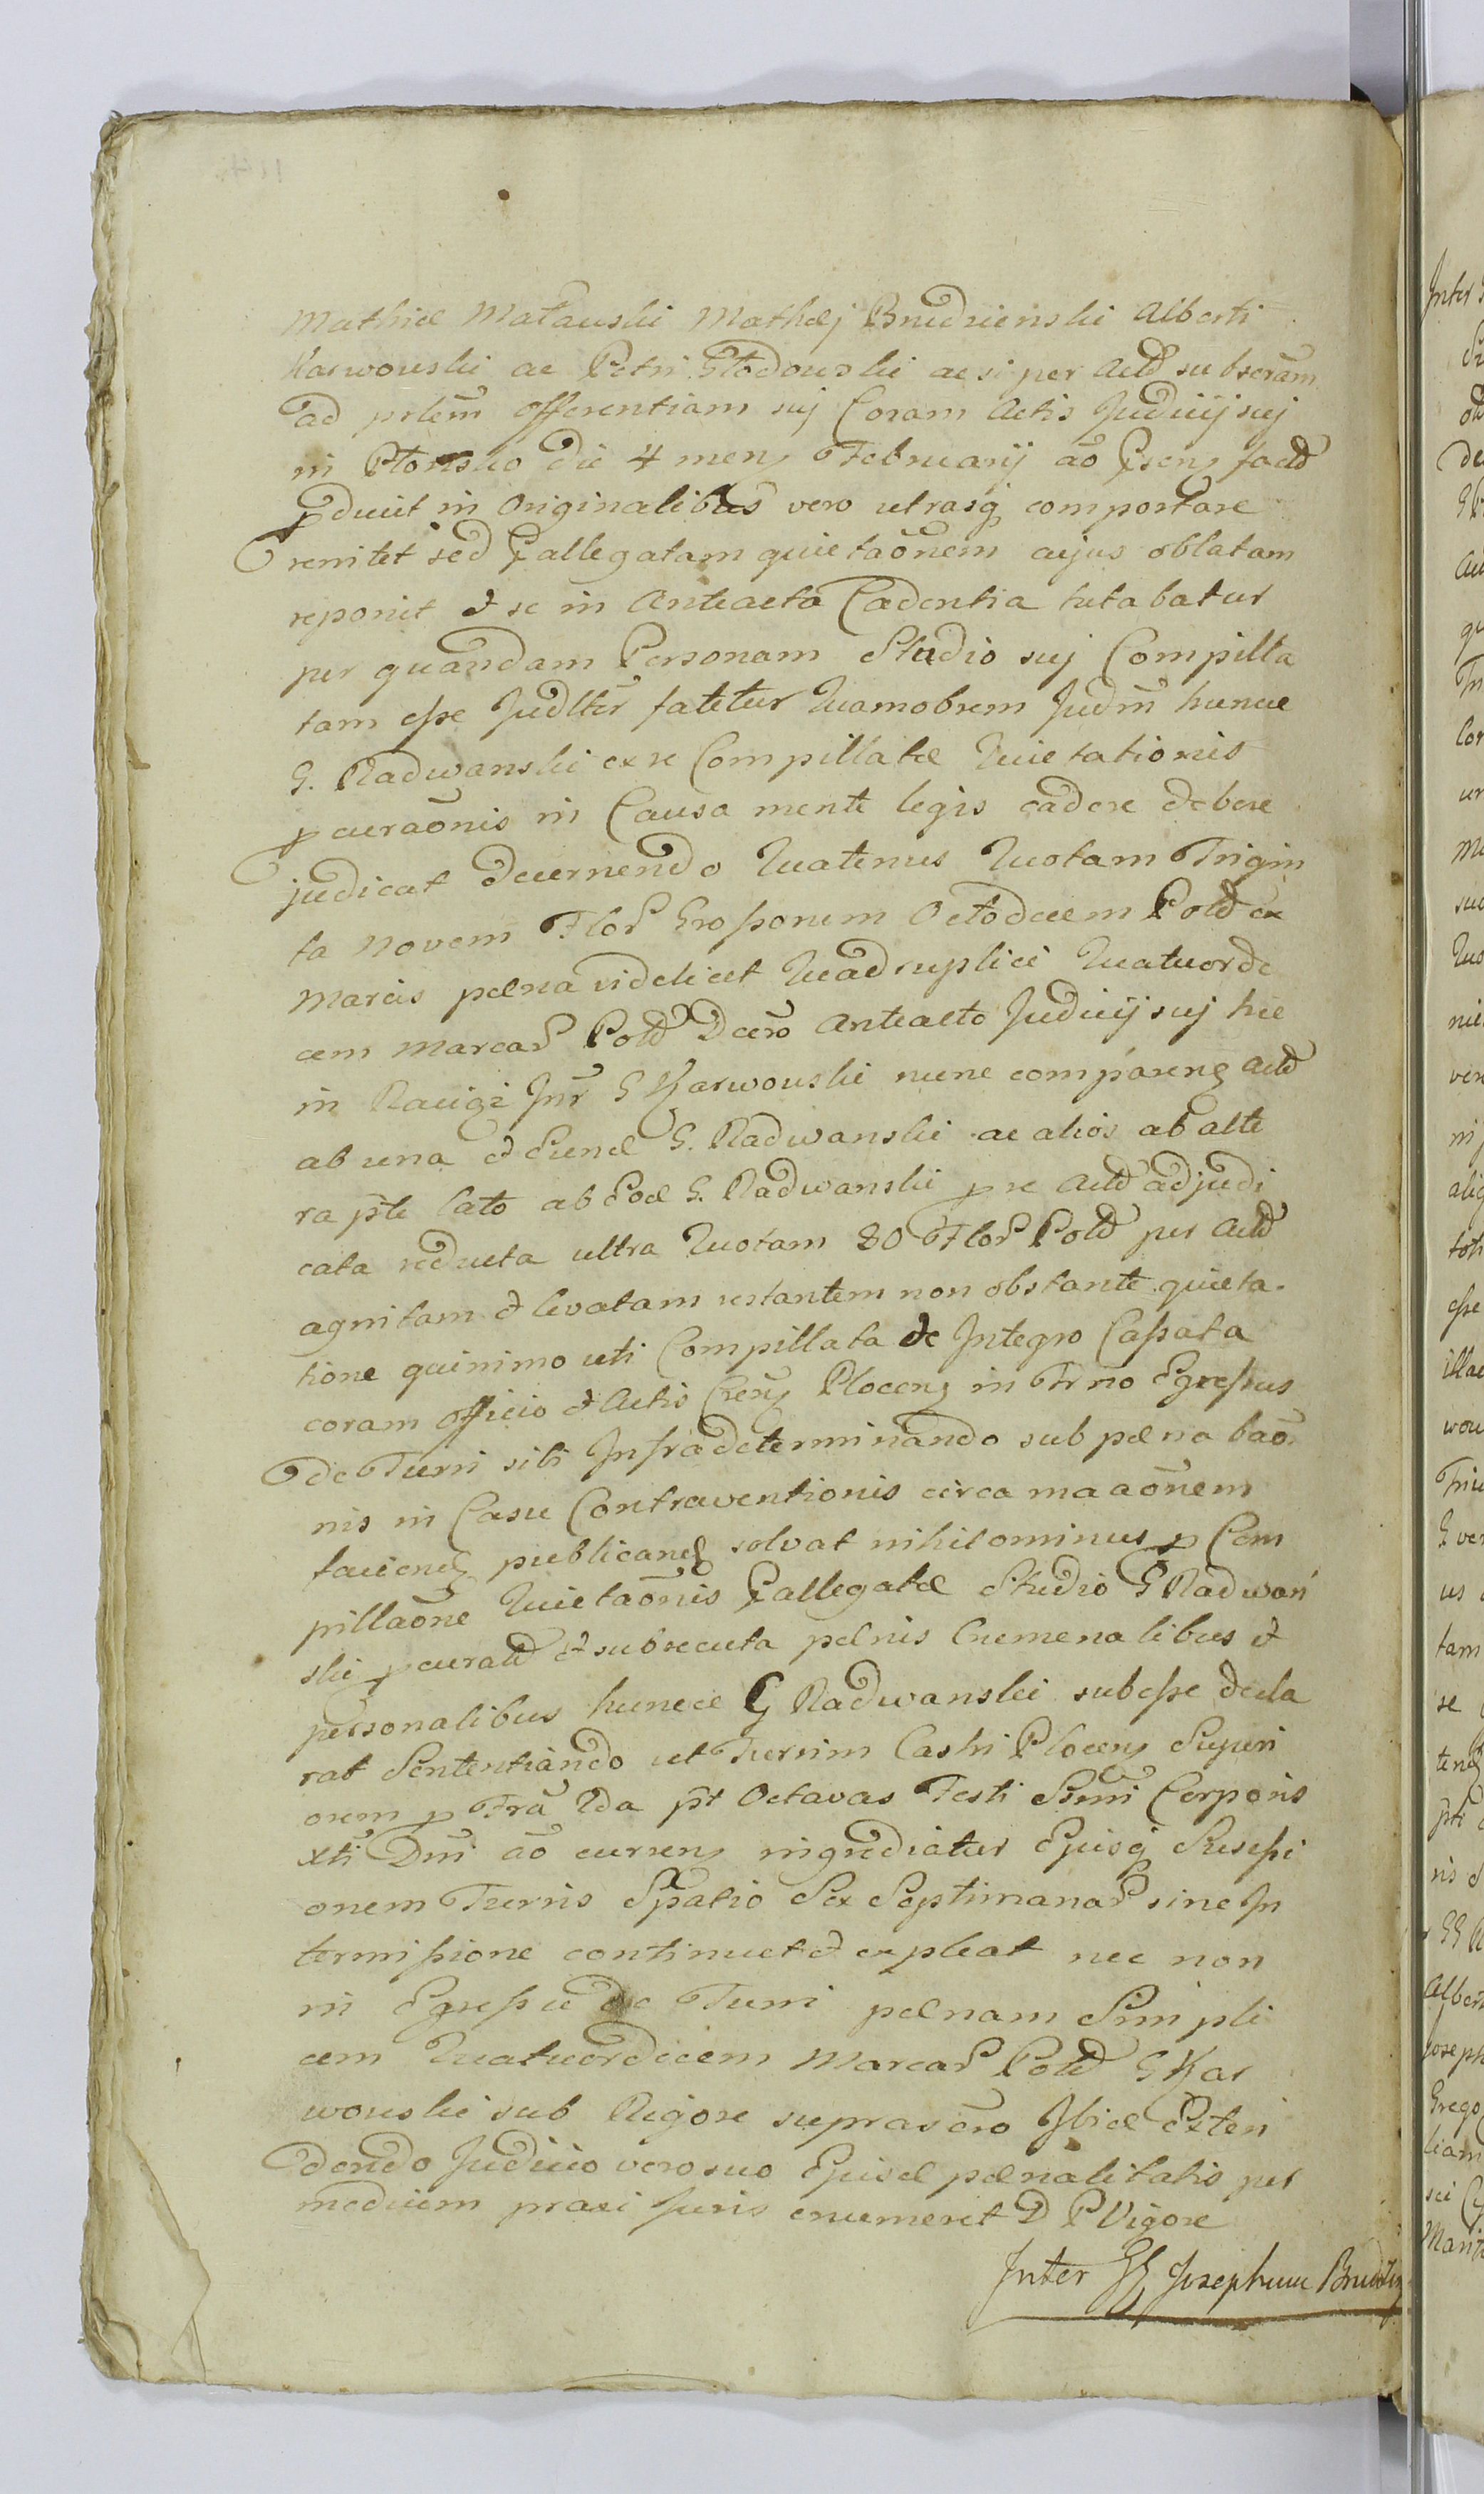 Mathiae Matawski Mathaej Brudzienski Alberti
Karwowski ac Petri Głodowski ac si per Actd subscram
ad prlem offerentiam suj Coram Actis Judicij suj
in Płonsko die 4 mens Februarij ao Psens factd
pducit in Originalibus vero utrasq comportare
renitet sed Pallegatam quietaonem cujus oblatam
reponit & se in Anteacta Cadentia tutabatur
per quandam Personam Studio suj Compilla
tam esse Judlter fatetur Quamobrem Judm huncce
G. Radwanski ex re Compillatae Quietationis
pcuraonis in Causa mente legis cadere debere
judicat decernendo Quatenus Quotam Trigin
ta Novem Flor Grossorum Octodecem Pold ex
Marcis paena videlicet Quadruplici Quatuorde
cem Marcar Pold Dcero Anteacto Judicij suj hic
in Raciąz Inr G Karwowski nunc comparens Actd
ab una & Eund G. Radwanski ac alios ab alte
ra pte lato ab Eod G. Radwanski p re Actd adjudi
cata reducta ultra Quotam 80 Flor Pold per Actd
agnitam & levatam restantem non obstante quieta
tione quinimo uti Compillata de Integro Cassata
coram officio & Actis Crens Plocens in Trno Egressus
de Turri sibi Infradeterminando sub paena bao
nis in Casu Contraventionis circa maaonem
faciend publicand solvat nihilominus p Com
pillaone Quietaonis Pallegatae Studio G Radwan
ski pcurata & subsecuta paenis Cremenalibus &
personalibus huncce G Radwanski subesse decla
rat Sententiando ut Turrim Castri Plocens Superi
orem p Fra 2da pt Octavas Festi Ssmi Corporis
Xti Dni ao currens ingrediatur Ejusq Sesessi
onem Turris Spatio Sex Septimanar sine In
termissione continuet & expleat nec non
in Egressu de Turri paenam Simpli
cem Quatuordecem Marcar Pold G Kar
wowski sub Rigore suprascro Ibid Exten
dendo Judicio vero suo Ejusd paenalitatis per
medium praxi Juris enumeret D P Vigore
Inter GG Josephum